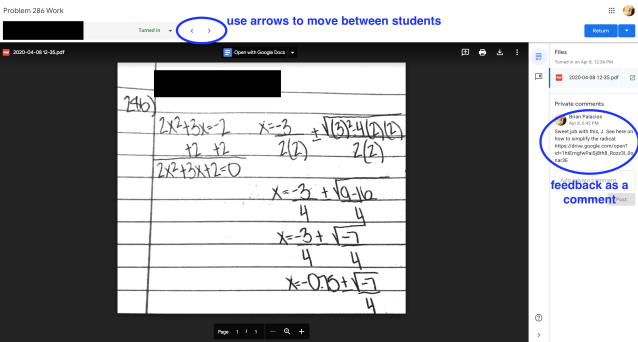 Problem 286 Work
Turned in
use arrows to move between students
Return
2020-04-08 12-35.pdf
Open with Google Docs
Files
Turned in on Apr 8, 12:36 PM
2020-04-08 12-35.pdf
Private comments
Brian Palacios
Apr 8, 6:42 PM
Sweet job with this, J. See here on
how to simplify the radical:
https://drive.google.com/open?
Add private comment
Post
feedback as a
comment
2x²+3x=-2
+2 +2
2x²+3x+2=0
x=-3/2(2) ± √(3)²-4(2)(2)/2(2)
x=-3/4 ± √9-16/4
x=-3/4 ± √-7/4
x=-0.75 ± √-7/4
Page 1 / 1